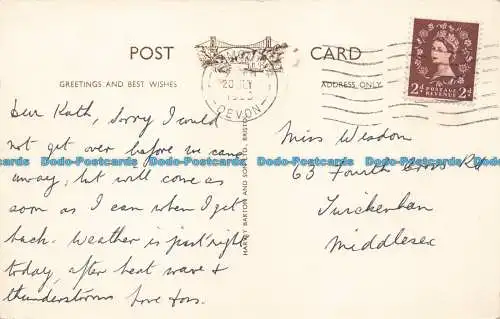 POST CARD
GREETINGS AND BEST WISHES
ADDRESS ONLY
DEVON
POSTAGE REVENUE
2d 2d
HARVEY BARTON AND SON LTD., BRISTOL
Dear Kath, Sorry I could
not get over before we came
away, but will come as
soon as I can when I get
back. Weather is just right
today, after heat wave &
thunderstorms love
Miss Weadon
63 Fourth Cross Rd
Twickenham
Middlesex
Dodo-Postcards Dodo-Postcards Dodo-Postcards Dodo-Postcards